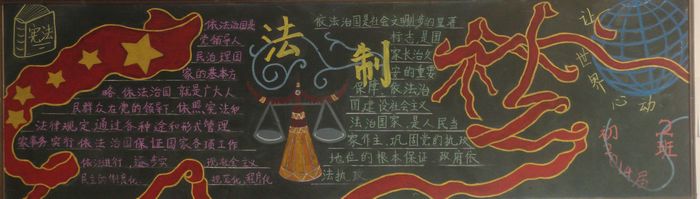 宪法
依法治国是
党领导人
民治理国
家的基本方
略,依法治国,就是广大人
民群众在党的领导下,依照宪法和
法律规定,通过各种途和形式管理
家事务实行依法治国保证国家各项工作
依法进行,逐步实现社会主义
民主的制度化
规范化,程序化
法制
依法治国是社会文明进步的显著
标志,是国
家长治久
安的重要
保障,依法治
国建设社会主义
法治国家,是人民当
家作主,巩固党的执政
地位的根本保证
政府依
法执政
让世界心动
初
2班